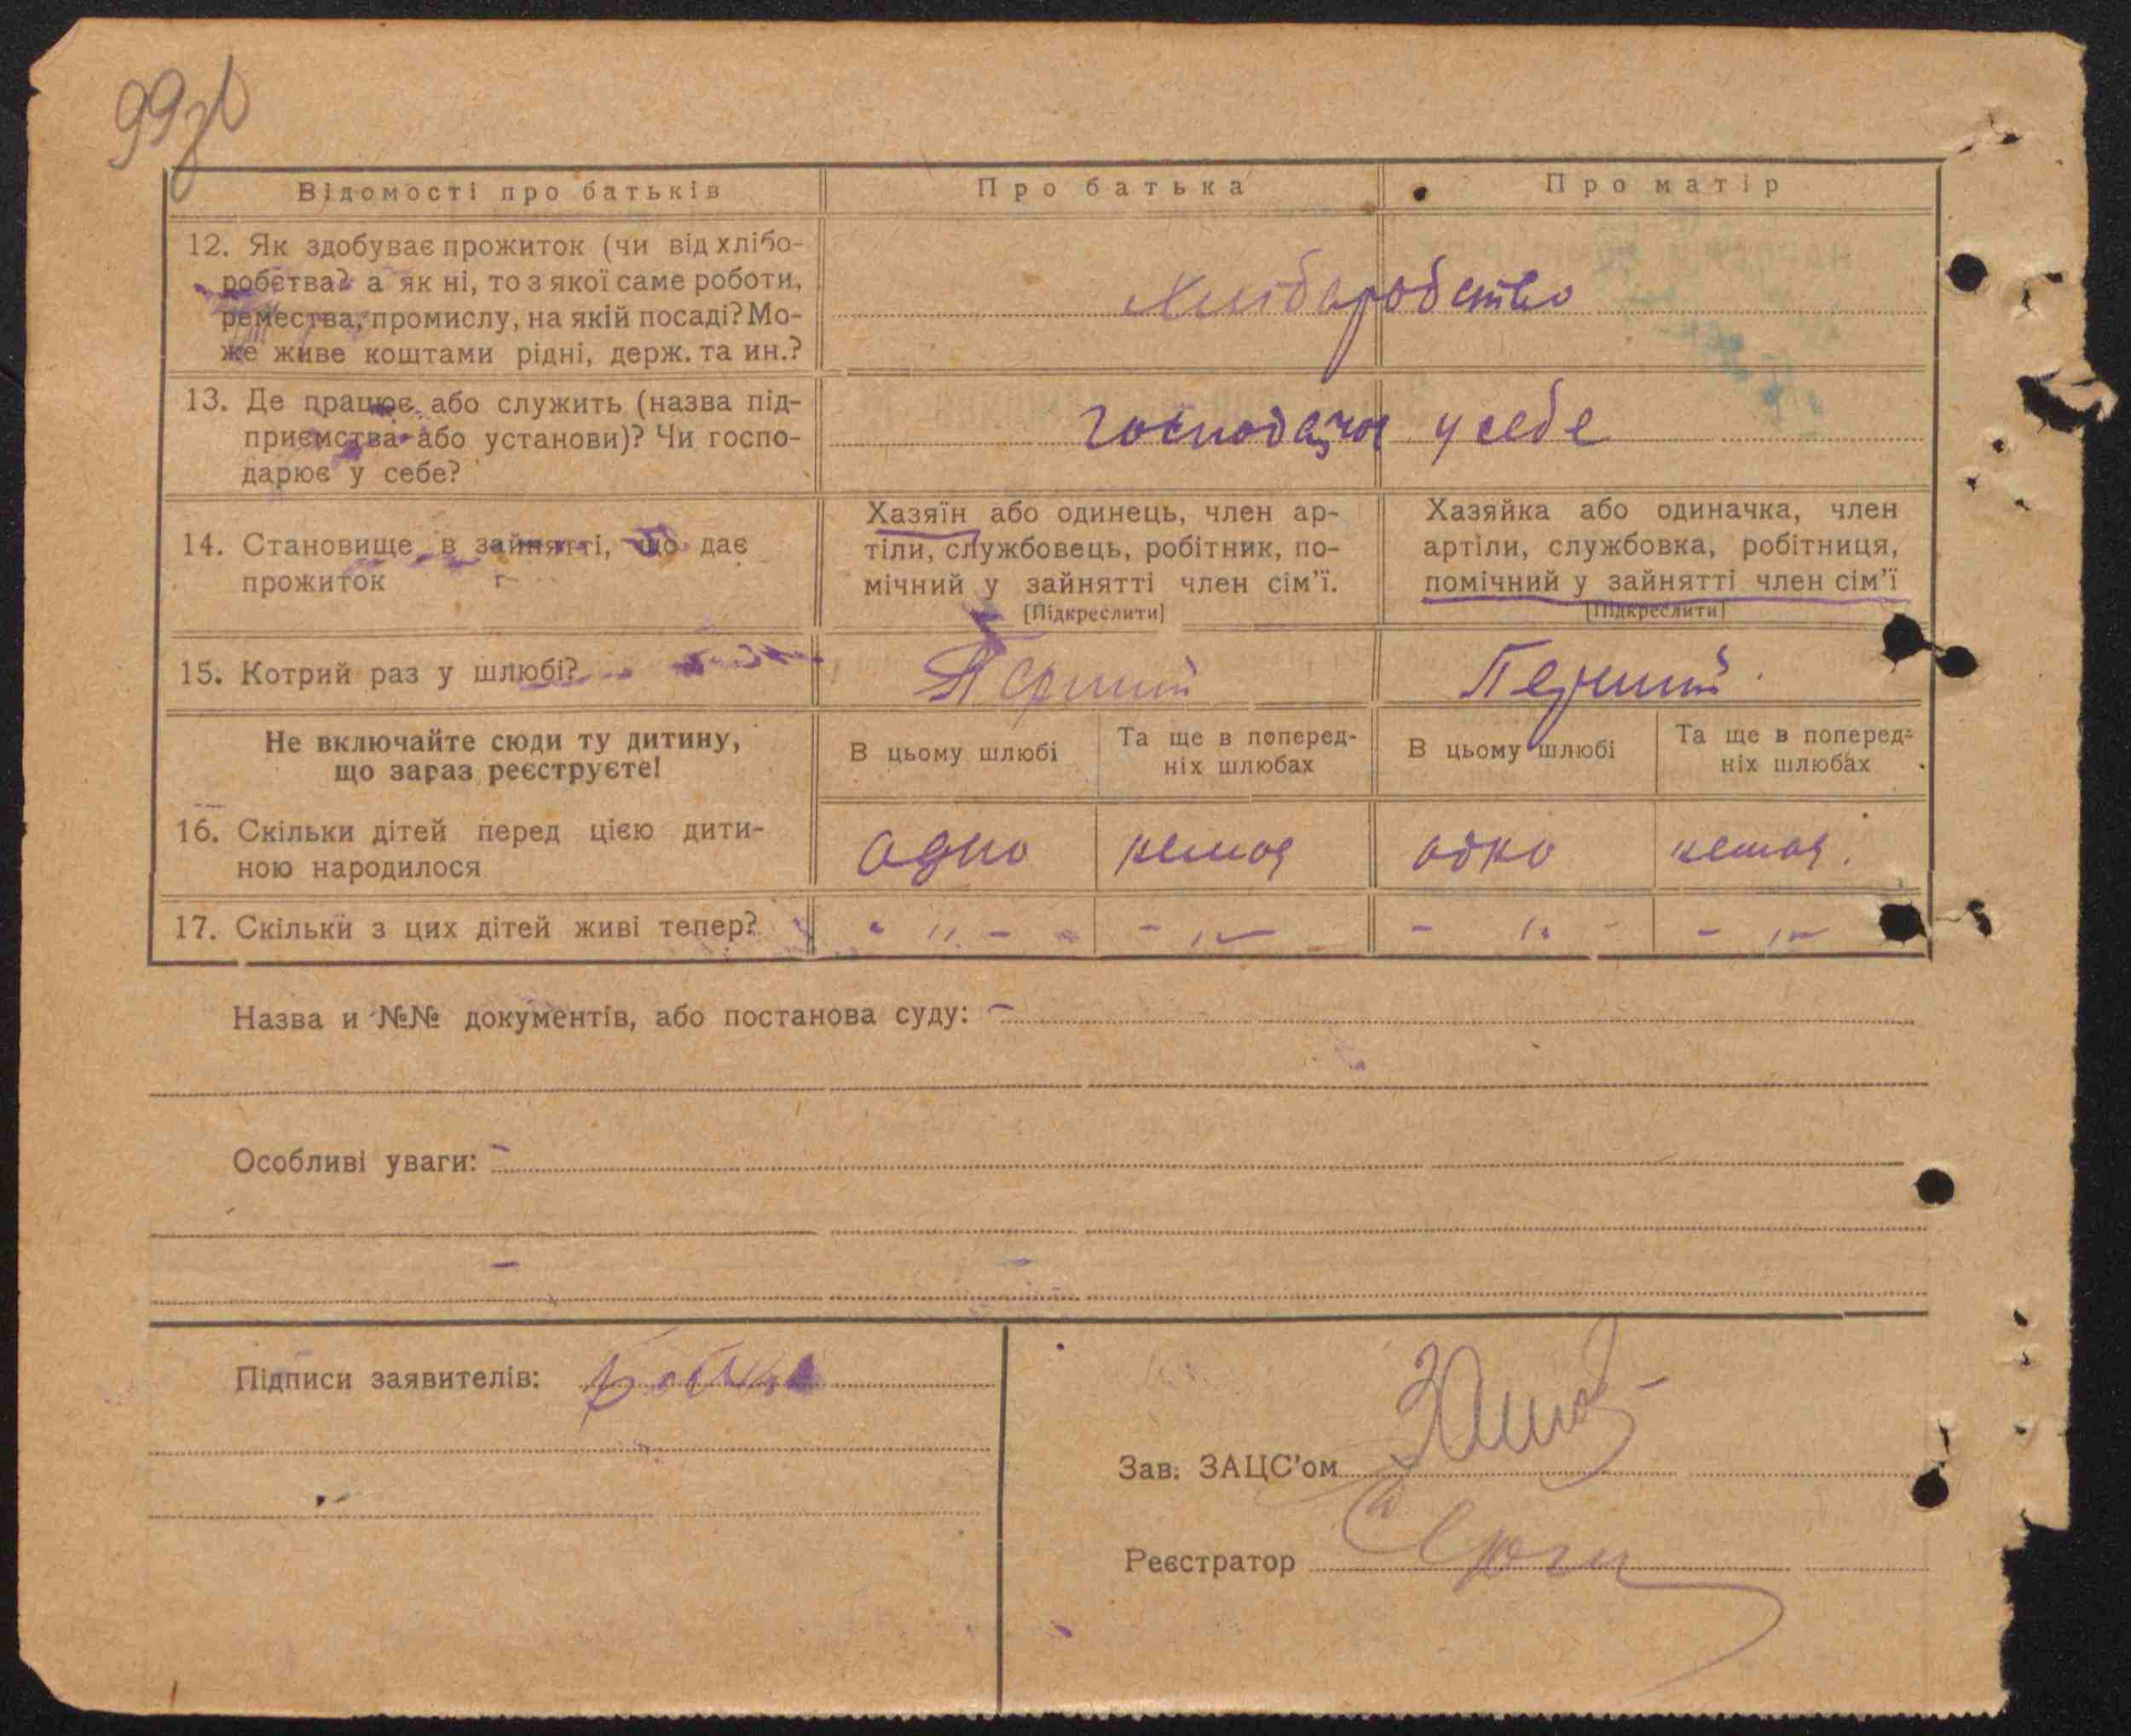 99зв
Відомості про батьків Про батька Про матір
12. Як здобуває прожиток (чи від хлібо-
робства? а як ні, то з якої саме роботи,
ремества, промислу, на якій посаді? Мо-
же живе коштами рідні, держ. та ин.?
Хлібаробство
13. Де працює або служить (назва під-
приємства або установи)? Чи госпо-
дарює у себе?
господарює у себе
14. Становище в зайнятті, що дає
прожиток
Хазяїн або одинець, член ар-
тіли, службовець, робітник, по-
мічний у зайнятті член сім'ї.
[Підкреслити]
Хазяйка або одиначка, член
артіли, службовка, робітниця,
помічний у зайнятті член сім'ї
[Підкреслити]
15. Котрий раз у шлюбі? Перший Перший
Не включайте сюди ту дитину,
що зараз реєструєте!
В цьому шлюбі
Та ще в поперед-
ніх шлюбах
В цьому шлюбі
Та ще в поперед-
ніх шлюбах
16. Скільки дітей перед цією дити-
ною народилося
одно немає одно немає.
17. Скільки з цих дітей живі тепер? - " - - " - - " - - " -
Назва и №№ документів, або постанова суду: -
Особливі уваги: -
Підписи заявителів:
Зав. ЗАЦС'ом
Реєстратор